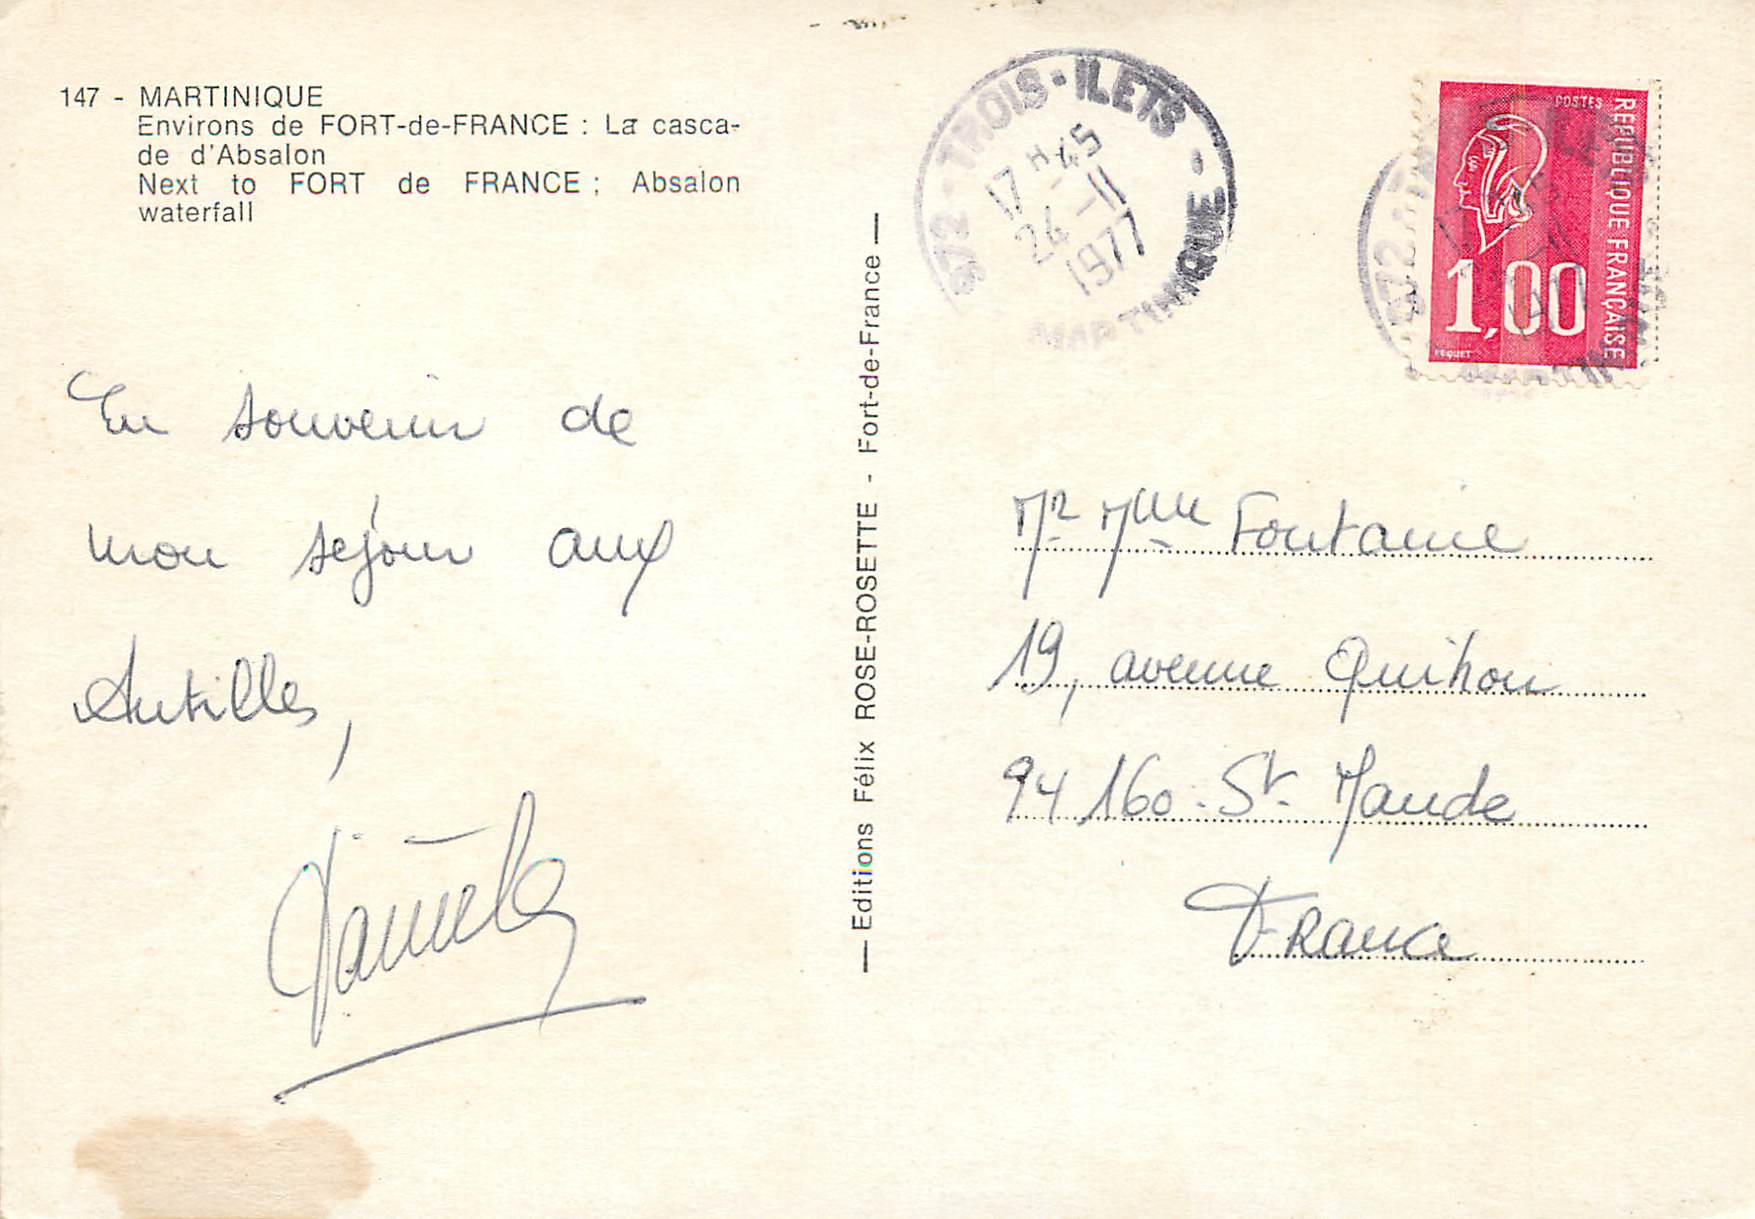 147 - MARTINIQUE
Environs de FORT-de-FRANCE : La casca-
de d'Absalon
Next to FORT de FRANCE ; Absalon
waterfall
En souvenir de
mon séjour aux
Antilles,
— Editions Félix ROSE-ROSETTE - Fort-de-France —
972 - TROIS-ILETS - MARTINIQUE
17 H 45
24 -11
1977
POSTES
REPUBLIQUE FRANÇAISE
1,00
BEQUET
Mr Mme Fontaine
19, avenue Quihou
94160 - St. Mande
France